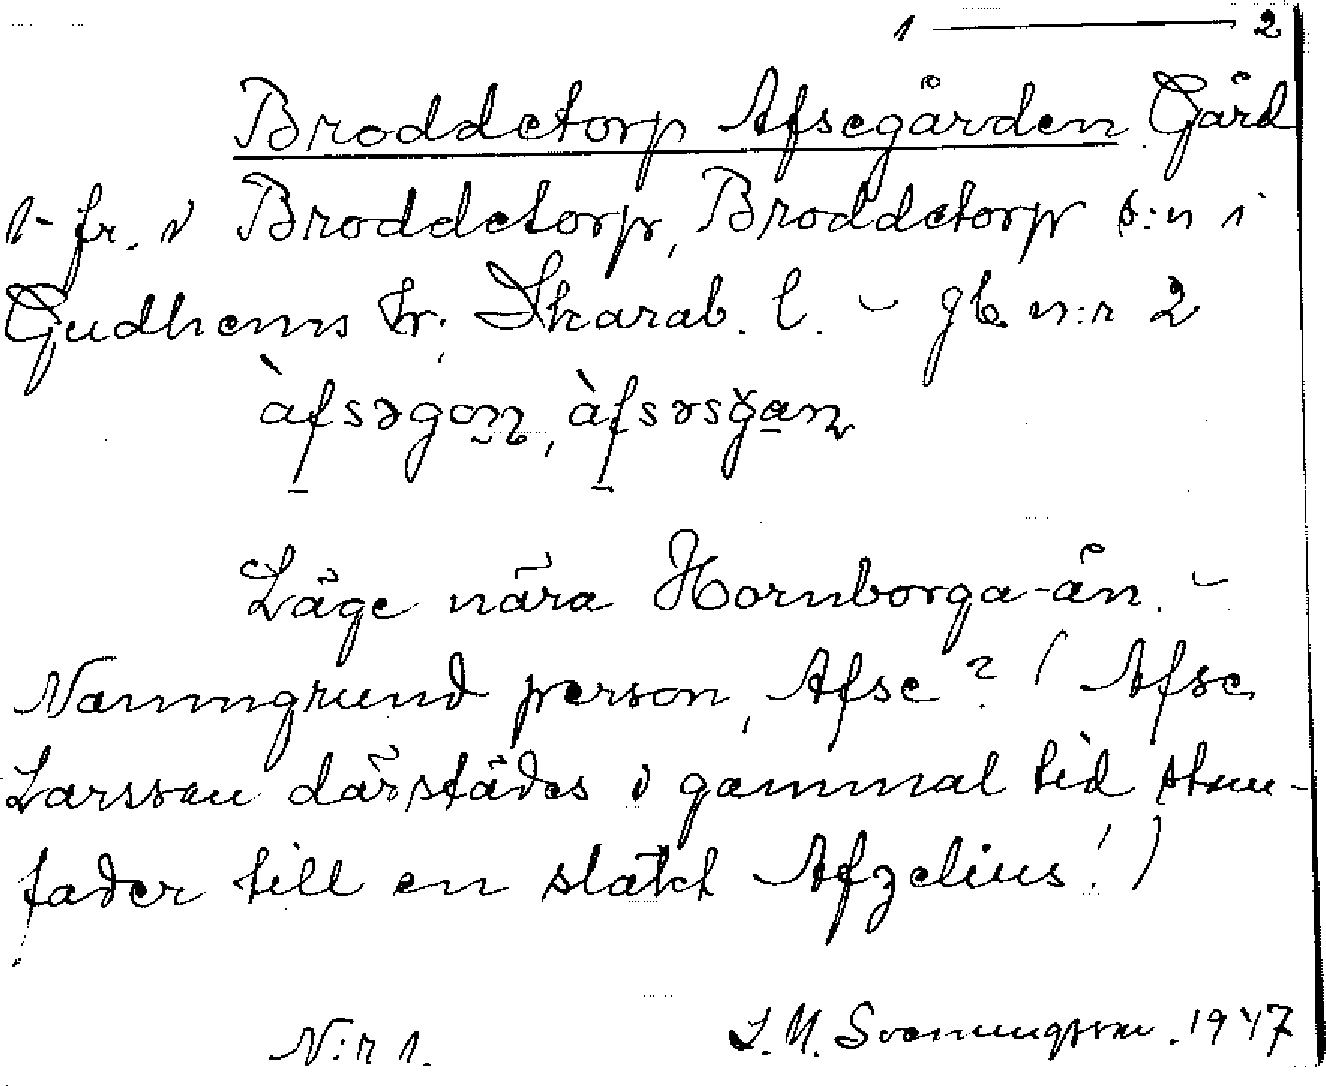 1 — 2
Broddetorp Afsegården Gård
i fr. v Broddetorp, Broddetorp s:n i
Gudhems hr. Skarab. l. – gb. n:r 2
àfsəgɑn, àfsəsğan
Läge nära Hornborga-ån. –
Namngrund person, Afse? (Afse
Larsson därstädes i gammal tid stam-
fader till en släkt Afzelius!)
N:r 1. L. M. Svenungsson. 1947